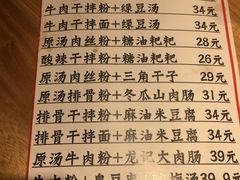 牛肉干拌粉+绿豆汤 34元
牛肉干拌面+绿豆汤 34元
原汤肉丝粉+糖油粑粑 28元
酸辣干拌粉+糖油粑粑 26元
原汤肉丝粉+三角干子 29元
原汤排骨粉+冬瓜山肉肠 31元
排骨干拌粉+麻油米豆腐 34元
排骨干拌面+麻油米豆腐 34元
原汤牛肉粉+龙记大肉肠 39元